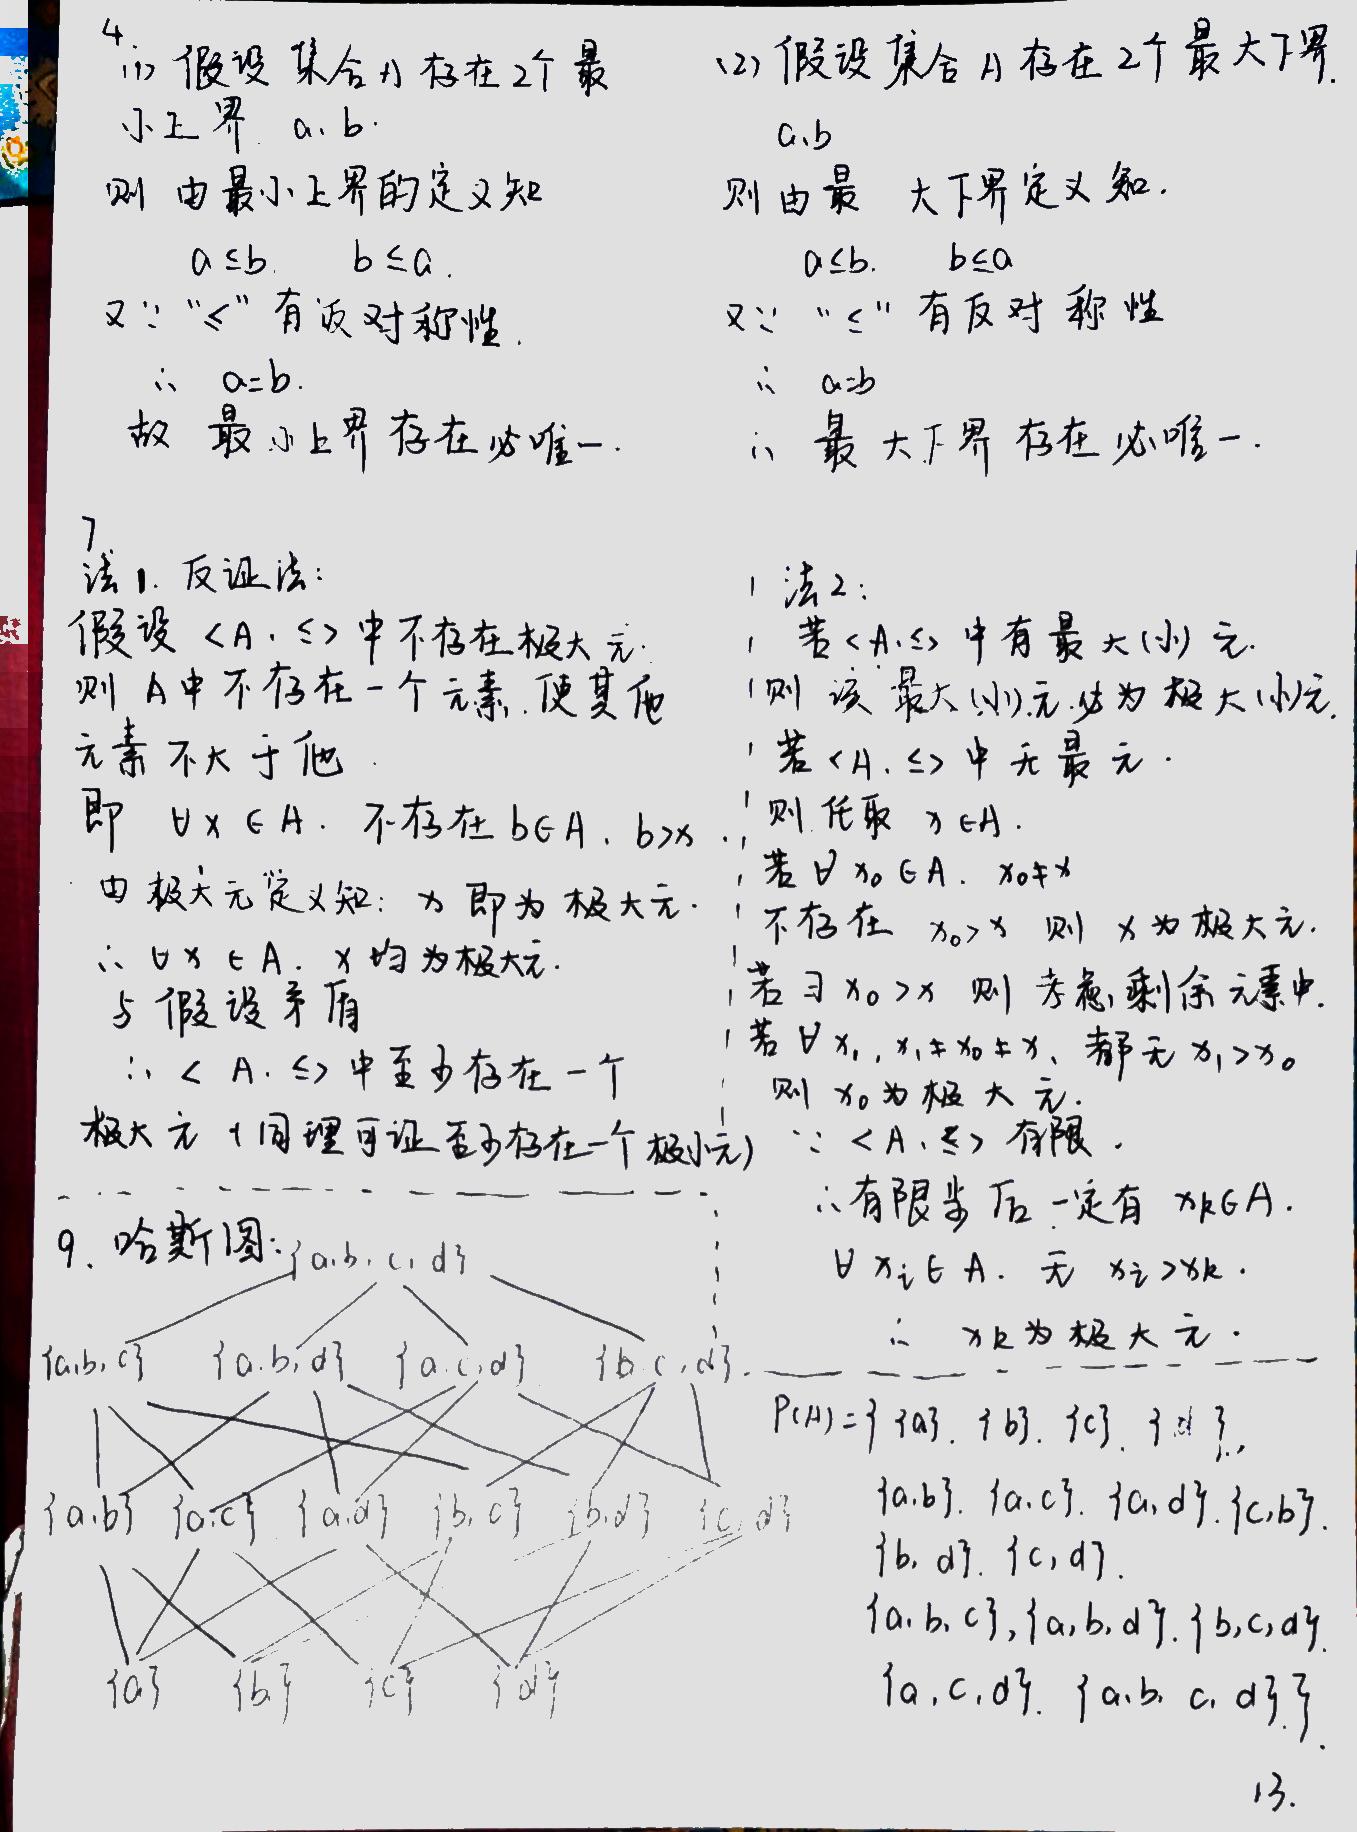 4.
(1) 假设集合A存在2个最
小上界 a、b.
则由最小上界的定义知
a≤b. b≤a.
又∵ "≤" 有反对称性.
∴ a=b.
故 最小上界存在必唯一.
(2) 假设集合A存在2个最大下界.
a、b
则由最大下界定义知.
a≤b. b≤a
又∵ "≤" 有反对称性
∴ a=b
∴ 最大下界存在必唯一.
7
法1. 反证法:
假设<A.≤>中不存在极大元.
则A中不存在一个元素.使其他
元素不大于他.
即 ∀x∈A. 不存在b∈A. b>x.
由极大元定义知: x即为极大元.
∴ ∀x∈A. x均为极大元.
与假设矛盾
∴ <A.≤>中至少存在一个
极大元 (同理可证至少存在一个极小元)
法2:
若<A.≤>中有最大(小)元.
则该最大(小)元.必为极大(小)元.
若<A.≤>中无最元.
则任取 x∈A.
若∀x₀∈A. x₀≠x
不存在 x₀>x 则 x为极大元.
若∃x₀>x 则考虑剩余元素中.
若∀x₁,x₁≠x₀≠x、都无x₁>x₀
则 x₀为极大元.
∵ <A.≤>有限.
∴有限步后一定有 xₖ∈A.
∀xᵢ∈A. 无 xᵢ>xₖ.
∴ xₖ为极大元.
9. 哈斯图:
{a.b.c.d}
{a.b,c} {a.b,d} {a.c,d} {b.c,d}
{a.b} {a.c} {a.d} {b,c} {b.d} {c,d}
{a} {b} {c} {d}
P(A)={ {a}. {b}. {c}. {d}.,
{a.b}. {a.c}. {a,d}. {c,b}.
{b,d}. {c,d}.
{a.b,c}, {a,b,d}. {b,c,d}.
{a,c,d}. {a.b.c,d}.}.
13.